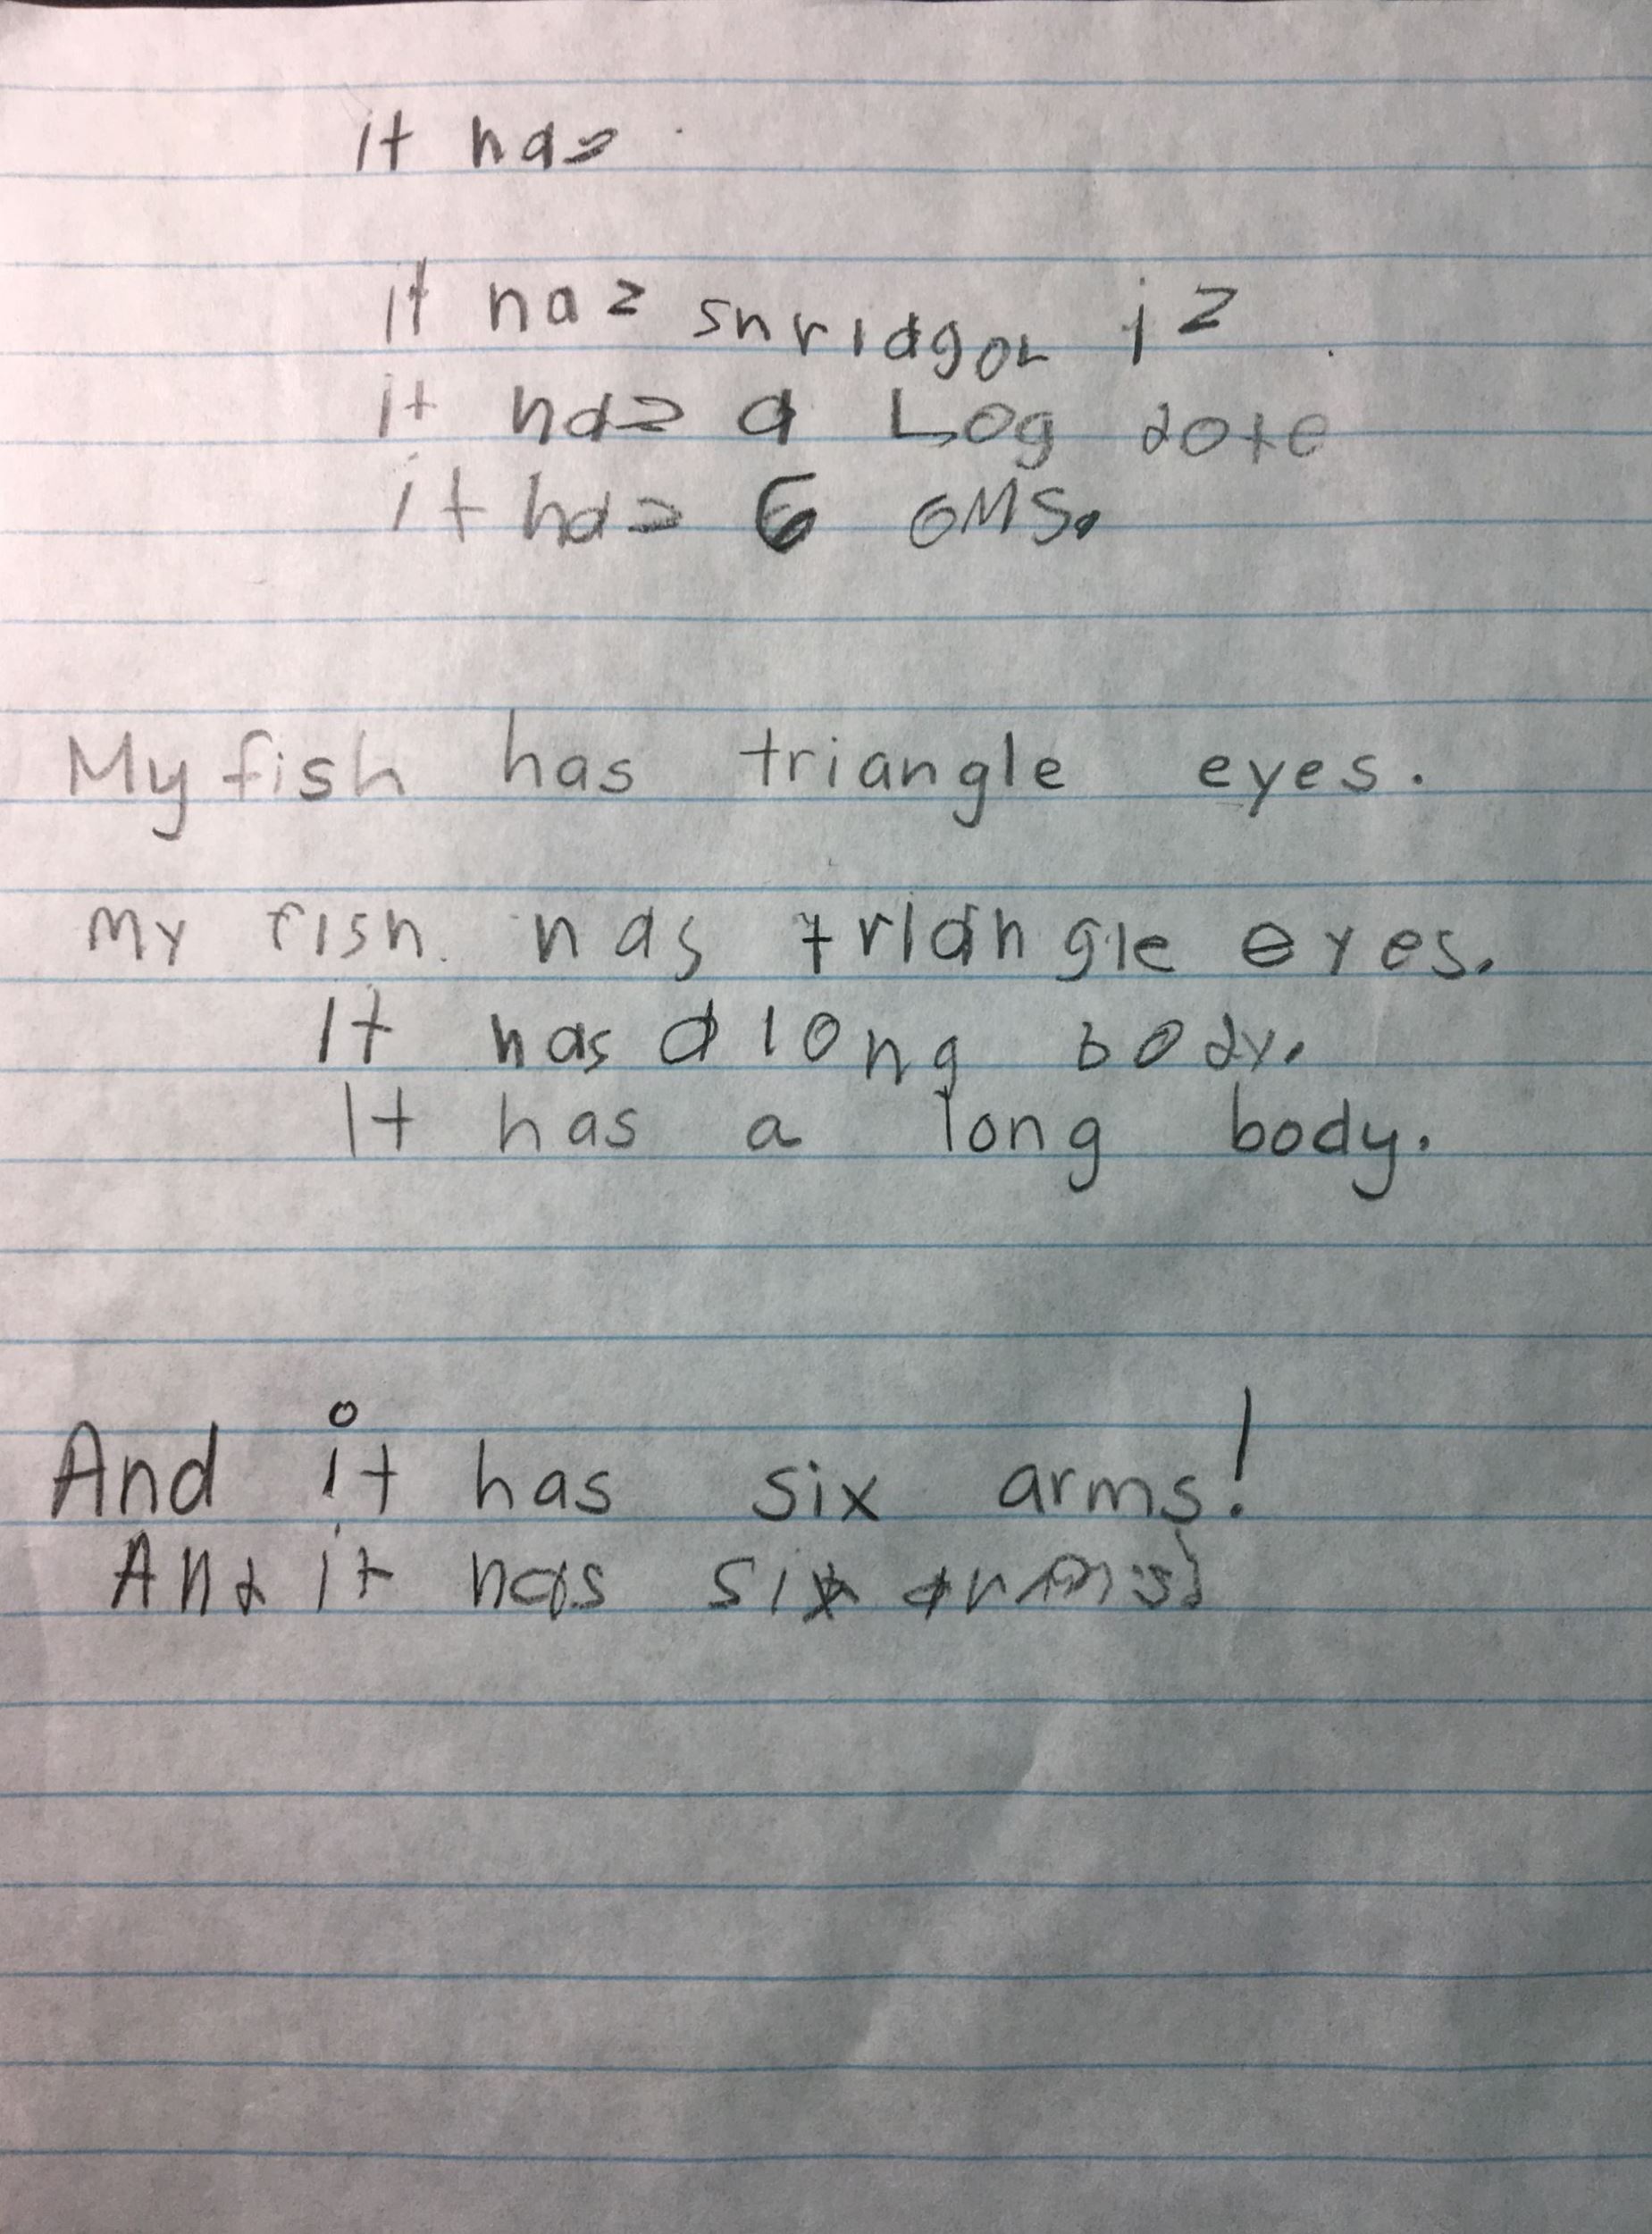 it haz
it haz snridgor iz
it haz a Log dote
it haz 6 oMS.
My fish has triangle eyes.
My fish. has triangle eyes.
It has a long body.
It has a long body.
And it has six arms!
And it has six arms!